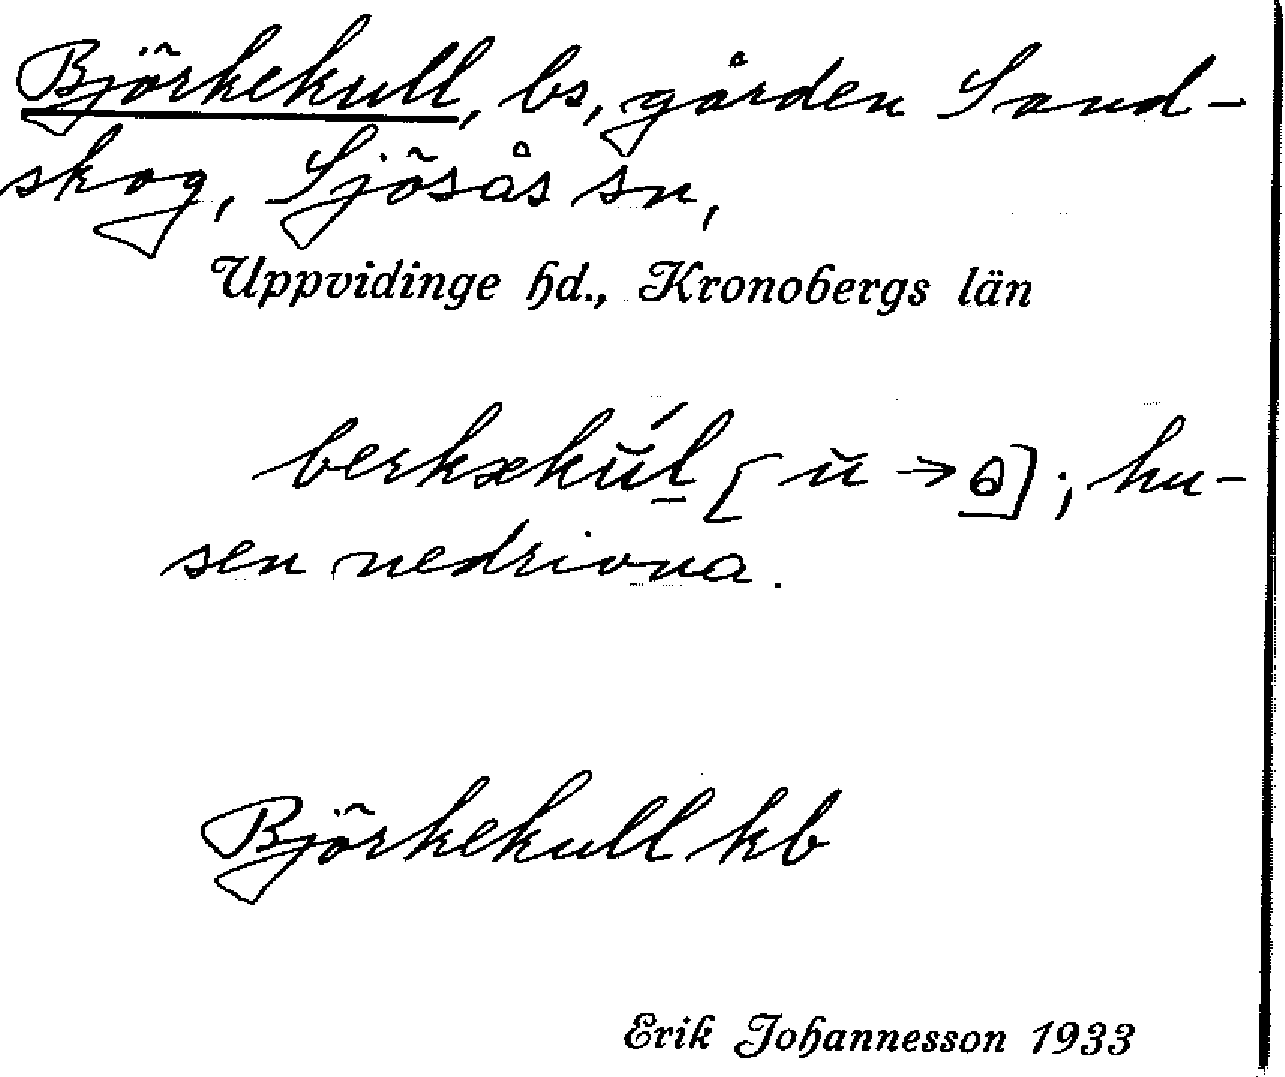 Björkekull, bs, gården Sand-
skog, Sjösås sn,
Uppvidinge hd., Kronobergs län
berkækŭ́l [ŭ → ɵ]; hu-
sen nedrivna.
Björkekull kb
Erik Johannesson 1933